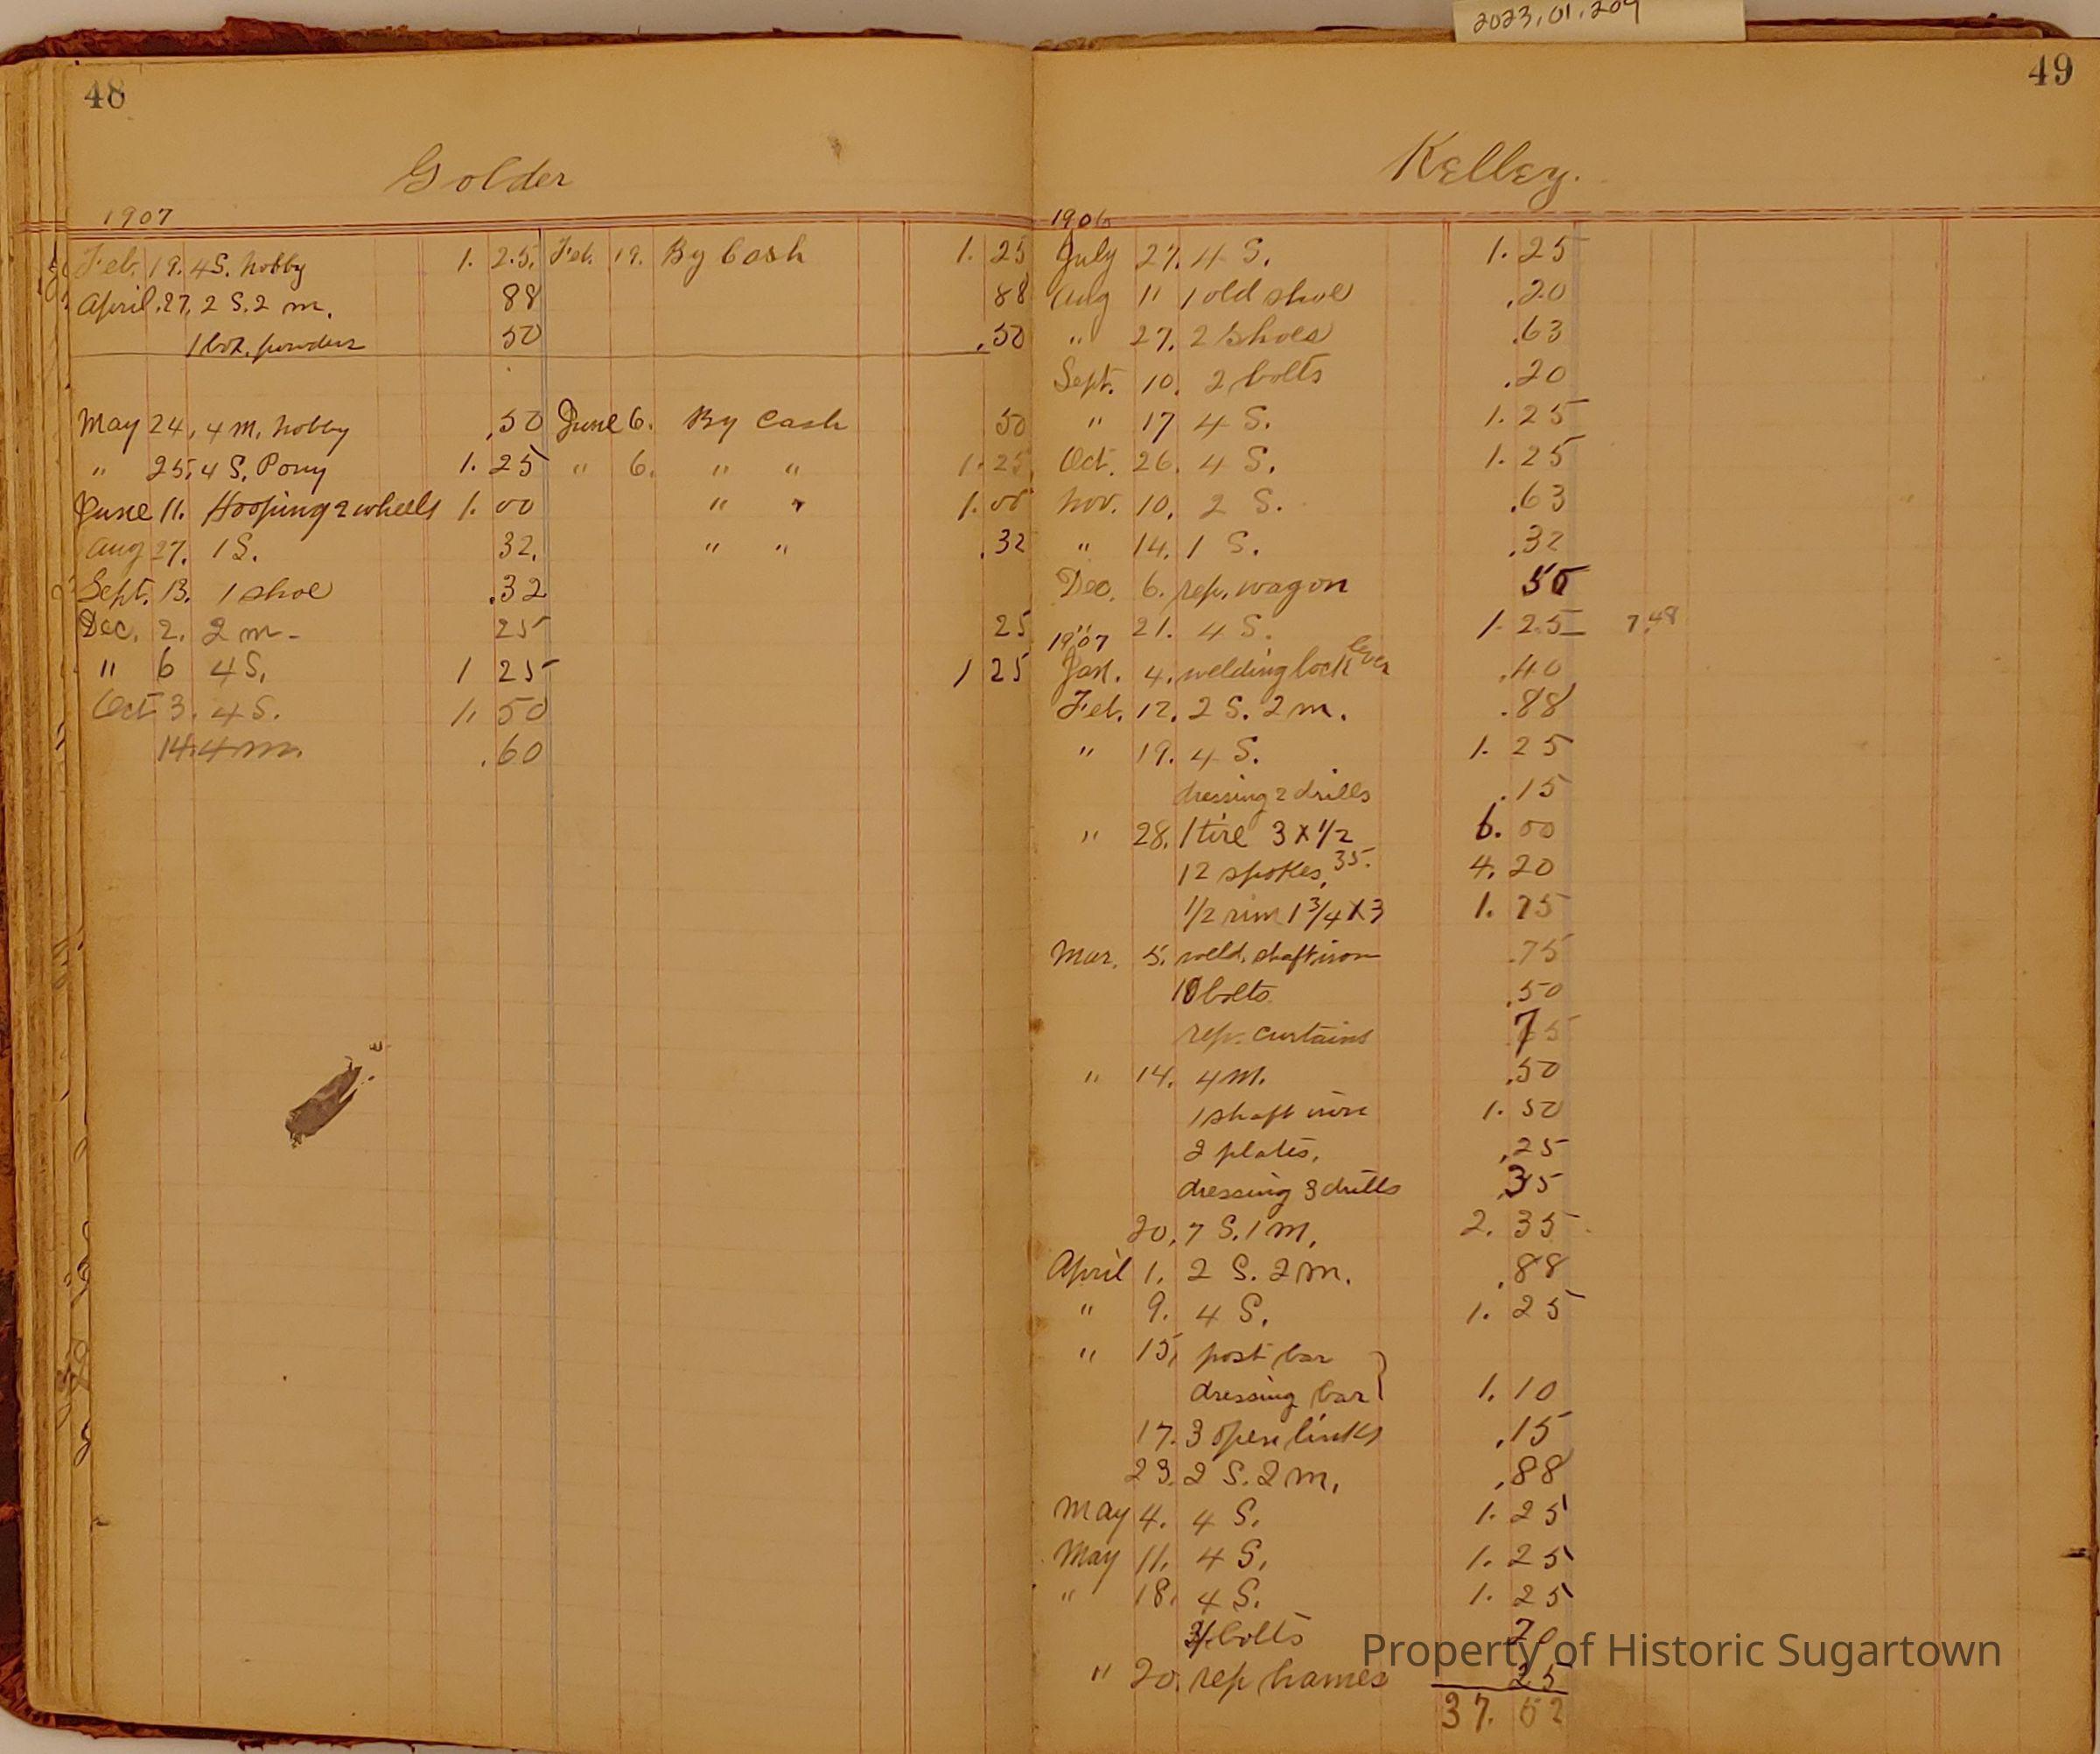 2023.01.209
48
Golder
1907
Feb. 19. 4 S. hobby 1. 25. Feb. 19. By Cash 1. 25
April. 27. 2 S. 2 m. 88 88
1 box. powders 50 .50
May 24, 4 m. hobby .50 June 6. By Cash 50
" 25. 4 S. Pony 1. 25 " 6. " " 1. 25
June 11. Hooping 2 wheels 1. 00 " " 1. 00
Aug 27. 1 S. 32. " " .32
Sept. 13. 1 shoe .32
Dec. 2. 2 m - 25 25
" 6 4 S. 1 25 1 25
Oct 3. 4 S. 1. 50
14. 4 m. .60
49
Kelley.
1906
July 27. 4 S. 1. 25
Aug 11 1 old shoe .20
" 27. 2 shoes .63
Sept. 10. 2 bolts .20
" 17 4 S. 1. 25
Oct. 26. 4 S. 1. 25
Nov. 10. 2 S. .63
" 14. 1 S. .32
Dec. 6. rep. wagon 50
" 21. 4 S. 1. 25 7.48
1907
Jan. 4. welding lock lever .40
Feb. 12. 2 S. 2 m. .88
" 19. 4 S. 1. 25
dressing 2 drills .15
" 28. 1 tire 3 x 1/2 6. 00
12 spokes, 35. 4. 20
1/2 rim 1 3/4 x 3 1. 75
Mar. 5. weld. shaft iron .75
10 bolts .50
rep. curtains 75
" 14. 4 m. .50
1 shaft iron 1. 50
2 plates, .25
dressing 3 drills .35
20. 7 S. 1 m. 2. 35
April 1. 2 S. 2 m. .88
" 9. 4 S. 1. 25
" 15, post bar
dressing bar } 1. 10
17. 3 open links .15
23. 2 S. 2 m. .88
May 4. 4 S. 1. 25
May 11. 4 S. 1. 25
" 18. 4 S. 1. 25
bolts 20
" 20. rep hames 25
37. 62
Property of Historic Sugartown